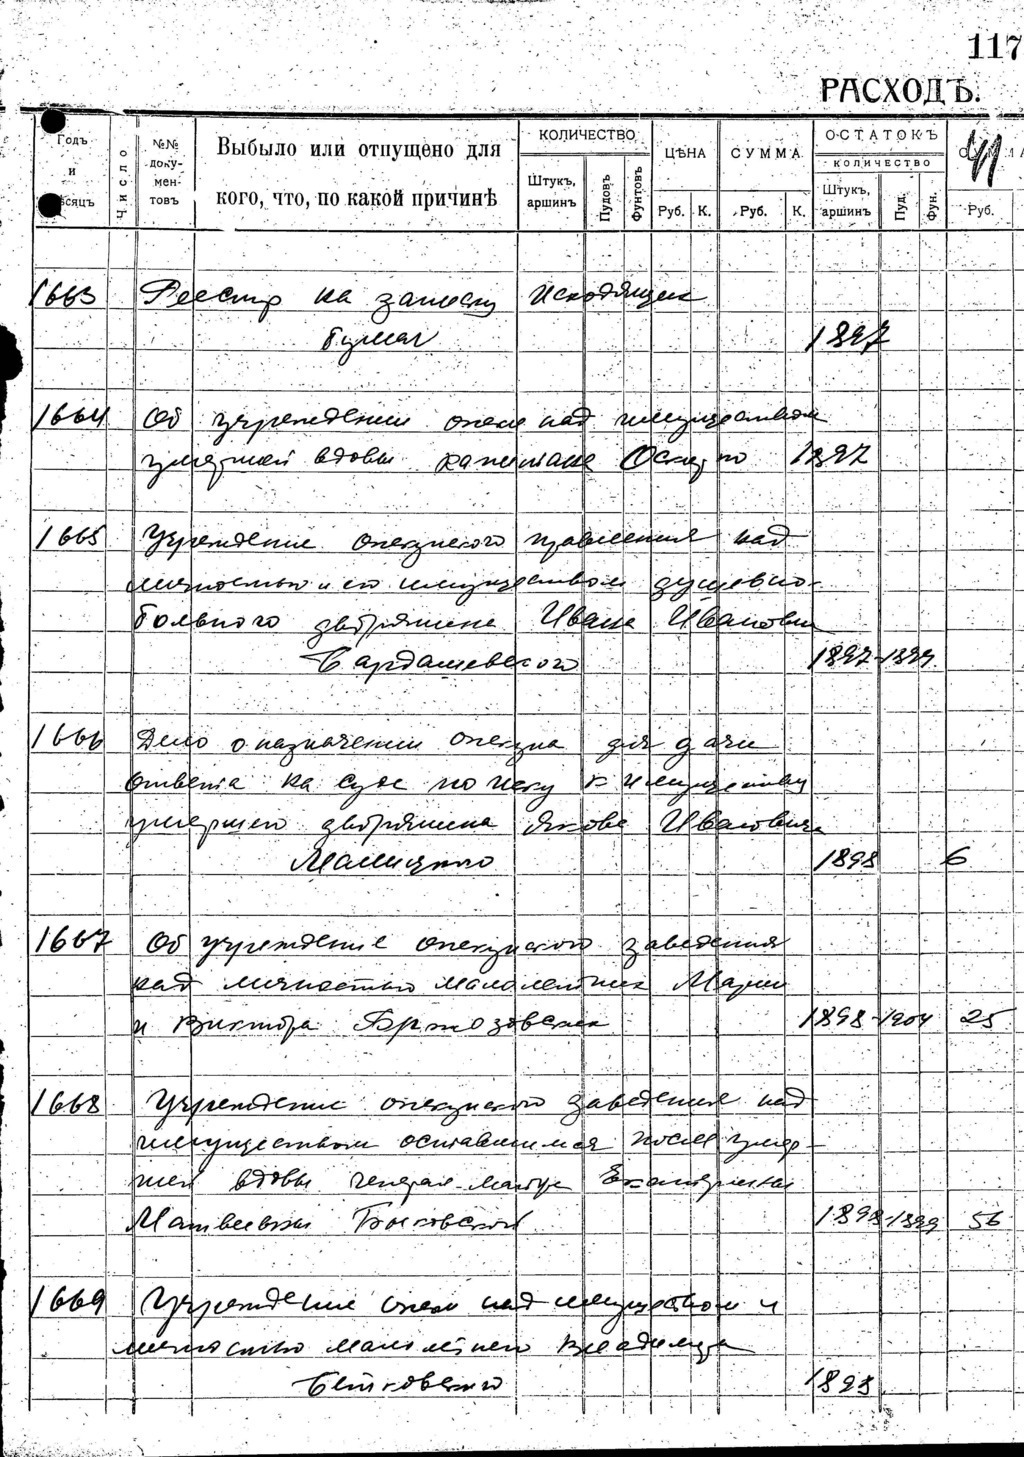 117
РАСХОДЪ.
Годъ и мѣсяцъ
Число
№№ доку-мен-товъ
Выбыло или отпущено для
кого, что, по какой причинѣ
КОЛИЧЕСТВО
Штукъ, аршинъ
Пудовъ
Фунтовъ
ЦѢНА
Руб. К.
СУММА
Руб. К.
ОСТАТОКЪ
КОЛИЧЕСТВО
Штукъ, аршинъ
Пуд.
Фун.
41
Руб.
1663 Реестр на записку Исходящих
бумаг 1897
1664 Об учреждении опеки над имуществом
умершей вдовы капитана 1897
1665 Учреждение опекунского правления над
личностью и его имуществом душевно-
больного дворянина Ивана Ивановича
Бардашевского 1897-1899
1666 Дело о назначении опекуна для дачи
ответа на суде по иску к имуществу
умершего дворянина Якова Ивановича
1898 6
1667 Об учреждение опекунского заведения
над личностью малолетних Марии
и Виктора Бржозовских 1898-1904 25
1668 Учреждение опекунского заведения над
имуществом оставшимся после умер-
шей вдовы генерал-майора Екатерины
Матвеевны Быковской 1898-1899 56
1669 Учреждение опеки над имуществом и
личностью малолетнего Владимира
1898